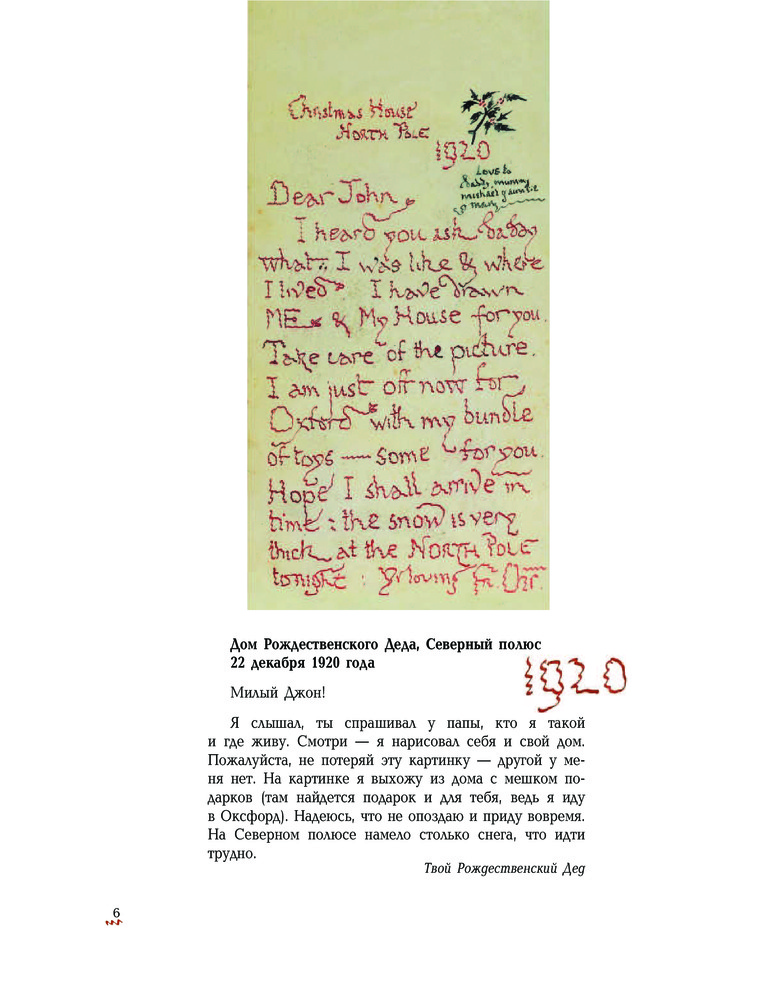 Christmas House
NORTH POLE
1920
Love to
daddy, mummy
michael & auntie
& mary
Dear John,
I heard you ask daddy
what I was like & where
I lived. I have drawn
ME & My House for you.
Take care of the picture.
I am just off now for
Oxford with my bundle
of toys — some for you.
Hope I shall arrive in
time: the snow is very
thick at the NORTH POLE
tonight: Yr loving Fr. Chr.
Дом Рождественского Деда, Северный полюс
22 декабря 1920 года
1920
Милый Джон!
Я слышал, ты спрашивал у папы, кто я такой
и где живу. Смотри — я нарисовал себя и свой дом.
Пожалуйста, не потеряй эту картинку — другой у ме-
ня нет. На картинке я выхожу из дома с мешком по-
дарков (там найдется подарок и для тебя, ведь я иду
в Оксфорд). Надеюсь, что не опоздаю и приду вовремя.
На Северном полюсе намело столько снега, что идти
трудно.
Твой Рождественский Дед
6